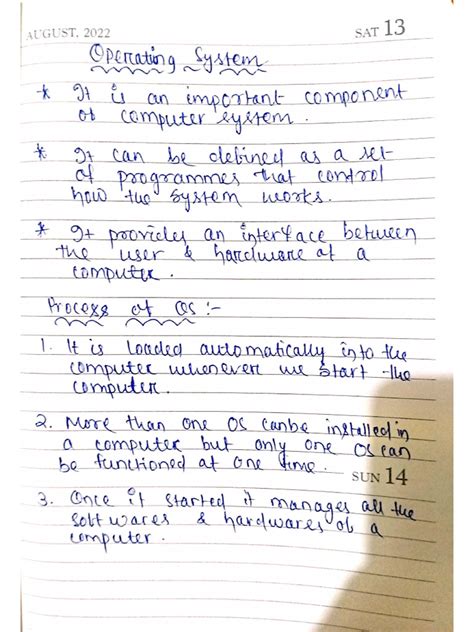 AUGUST, 2022
SAT 13
Operating System
* It is an important component
of computer system.
* It can be defined as a set
of programmes that control
how the system works.
* It provides an interface between
the user & hardware of a
computer.
Process of OS :-
1. It is loaded automatically into the
computer whenever we start the
computer.
2. More than one OS canbe installed in
a computer but only one OS can
be functioned at one time.
SUN 14
3. Once it started it manages all the
softwares & hardwares of a
computer.